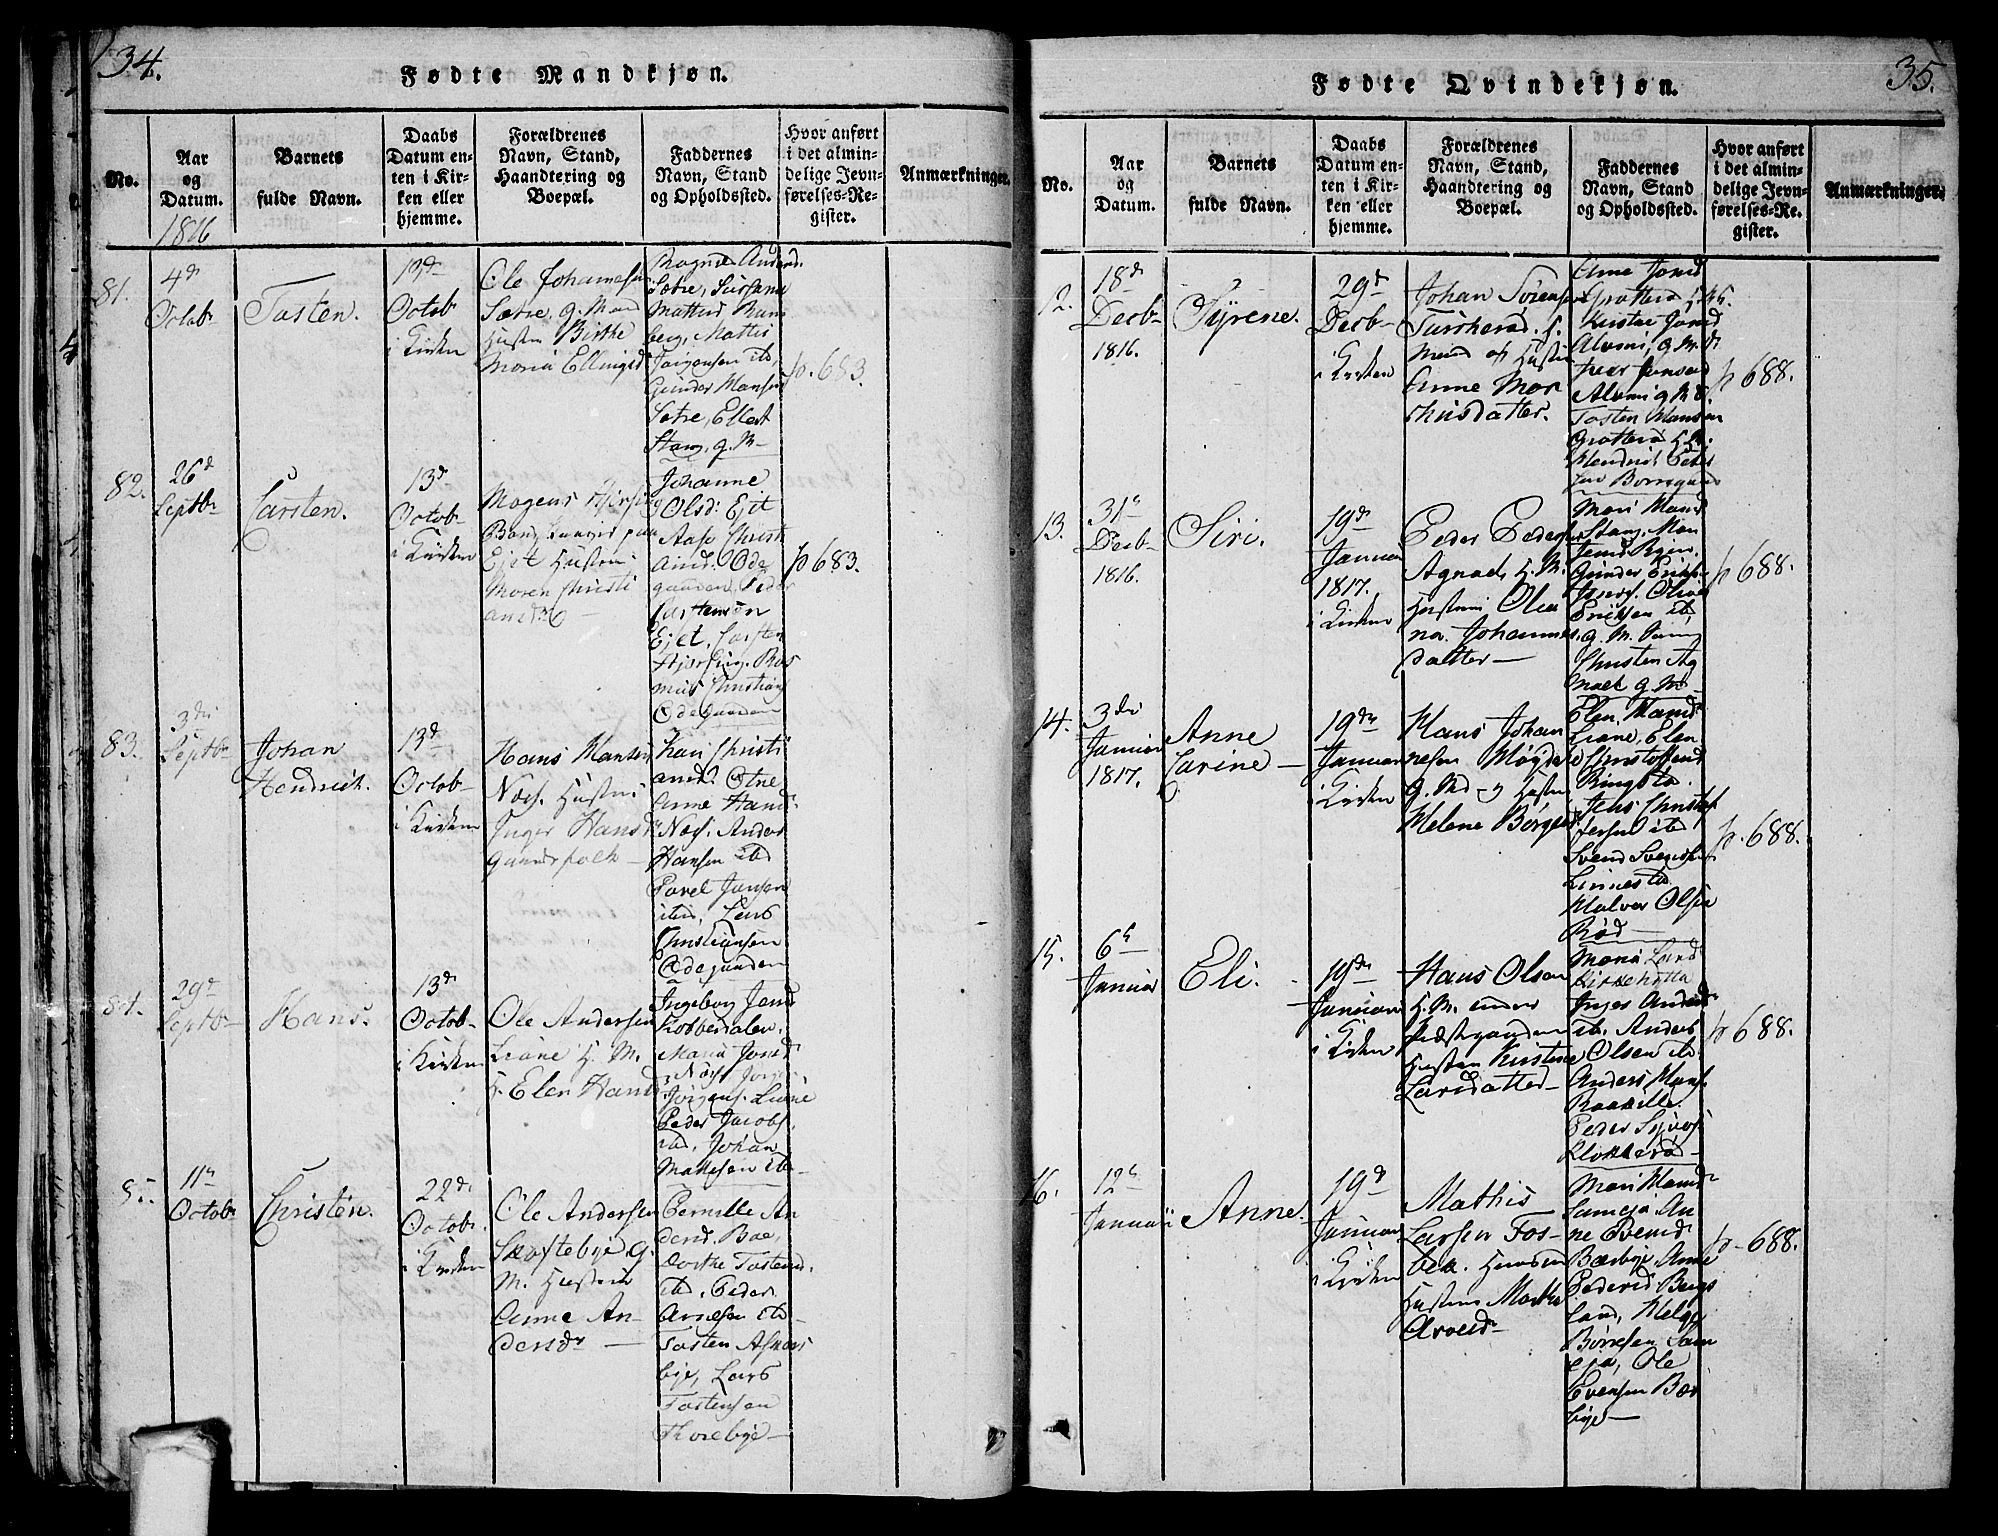 34.
Fødte Mandkjøn.
No.
Aar
og
Datum.
1816
Barnets
fulde Navn.
Daabs
Datum en-
ten i Kir-
ken eller
hjemme.
Forældrenes
Navn, Stand,
Haandtering og
Boepæl.
Faddernes
Navn, Stand
og Opholdssted.
Hvor anført
i det almin-
delige Jevn-
førelses-Re-
gister.
Anmærkninger.
81.
4d
Octobr
Tosten.
13d
Octob
i Kirken
Ole Johannesen
Sætre. g. Mand
Hustru Birthe
Maria Ellingsd
Sætre,
Mattis
Gunder Hansen
Sætre, Ellert
Stang, g. M
p. 683.
82.
26d
Septbr
Carsten.
13d
Octob
i Kirken
Mogens
Ejet Hustru
Maren Christi
ansdr
Johanne
Olsd: Ejet
Aase Christi
ansd: Øde
gaarden, Peder
Carstensen
Ejet, Carsten
Ras
mus Christians
Ødegaarden
p 683.
83.
3die
Septbr
Johan
Hendrich.
13d
Octob
i Kirken
Hans Hansen
Næs. Hustru
Inger Hansd
gaardsfolk
Kari Christi
ansd. Øtne
Anne Hansd
Næs. Anders
Hansen ibd
Povel Jansen
ibd, Lars
Christiansen
Ødegaarden
84.
29d
Septbr
Hans.
13d
Octob
i Kirken
Ole Andersen
Liane H. M.
H. Elen Hansd
Ingeborg Jensd
Kobberdalen.
Maria Jensd
Næs
Jørgens. Liane
Peder Jacobs.
ibd, Johan
Mathesen ib
85.
11te
Octobr
Christen.
22d
Octobr.
i Kirken
Ole Andersen
g.
M. Hustru
Anne An-
dersdr
Pernille An
dersd. Boe,
Dorthe Tostensd.
ibd, Peder
Arnesen ibd
Tosten
bye, Lars
Tostensen
Thorebye
35.
Fødte Qvindekjøn.
No.
Aar
og
Datum.
Barnets
fulde Navn.
Daabs
Datum en-
ten i Kir-
ken eller
hjemme.
Forældrenes
Navn, Stand,
Haandtering og
Boepæl.
Faddernes
Navn, Stand
og Opholdssted.
Hvor anført
i det almin-
delige Jevn-
førelses-Re-
gister.
Anmærkninger.
12.
18d
Decb
1816.
Syrene.
29d
Decb
i Kirken
Johan Sørensen
Hustru
Anne Mor
thisdatter.
Anne Jensd
Alvim, g. M.
Iver Jensen
Alvim g M.
Tosten Hansen
Hendrich Peder
p 688.
13.
31te
Decb
1816.
Siri.
19d
Januar
1817.
i Kirken
Peder Pedersen
Agnæs, H. M.
Hustru Olea
na. Johannes
datter
Mari Hansd
Stang, Mari
Gunder Eriks.
Oliver
Eriksen ibd
g. M.
Christen Ag
næs g. M
p 688.
14.
3die
Januar
1817.
Anne
Carine
19de
Januar
i Kirken
Hans Johan
nesen
g. Md - og Hustru
Helene Børgesd.
Elen Hansd
Liane, Elen
Christoffersd
Ringstad
Jens Christof
fersen ibd
Svend Svendsen
Linnestad
Halvor Olsen
Rød
p. 688.
15.
6te
Januar
Eli.
19d
Januar
i Kirken
Hans Olsen
H. M. under
Præstegaarden
Hustru Kirstene
Larsdatter
Maria Larsd
Kirkehytta
Inger Andersd
ib. Anders
Olsen ib.
Anders Hans.
Peder
Klokkerød
p 688.
16.
12te
Januar
Anne
19d
Januar
i Kirken
Mathis
Larsen Fos-
bek. Huusmd
Hustru Martha
Mari Hansd
An
ne Evensd
Bærbye, Anne
Pedersd Berg
land, Helge
Børresen
Ole
Evensen Bær
bye
p 688.